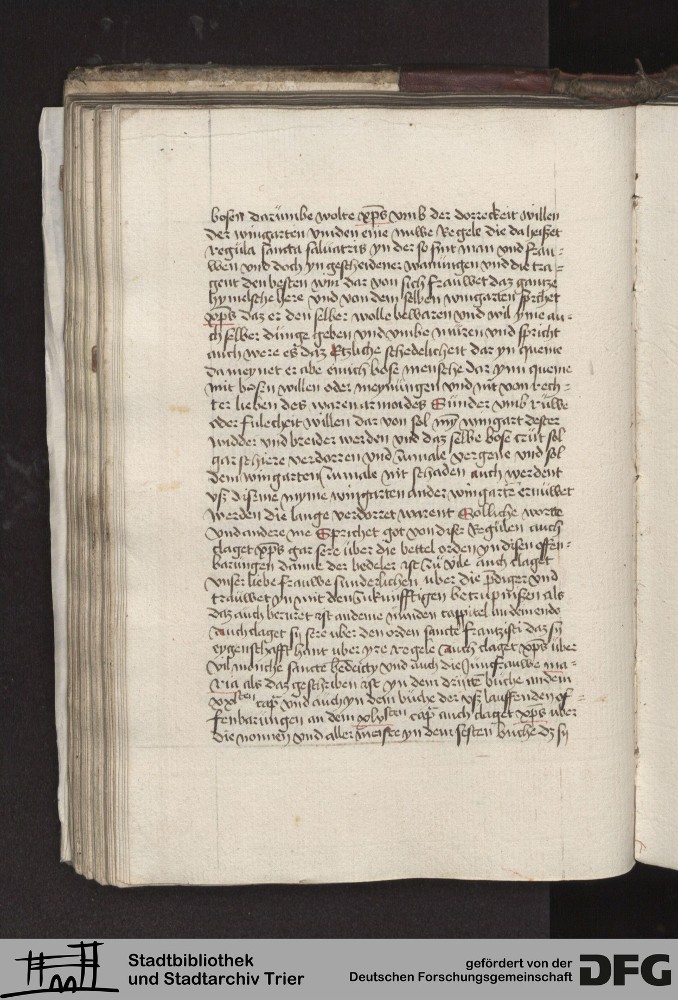 bosen darumbe wolte xp̄s vmb der dorreckeit willen
der wingarten vinden eine nuwe Regele die da heisset
regula sancta saluatris yn der so sint man vnd frau-
wen vnd doch yn gescheidener wanungen vnd die tra-
gent den besten win dar von sich frauwet daz gantze
hymelsche here vnd von dem selben wingarten sprichet
xp̄s daz er den selber wolle bewaren vnd wil yme au-
ch selber dunge geben vnd vmbe muren vnd spricht
auch were es daz Etzliche schedelicheit dar yn queme
da meynet er abe einich bose mensche dar ynn queme
mit bosen willen oder meynungen vnd nit von rech-
ter lieben des waren armoides Sunder vmb ruwe
oder fulecheit willen dar von sol myn̄ wingart dester
widder vnd breider werden vnd daz selbe bose crut sol
gar schiere verdorren vnd zumale vergene vnd sol
dem wingarten zumale nit schaden auch werdent
vsz diseme myme wingarten ander wingartē ernuwet
werden die lange verdorret warent Solliche worte
vnd andere me Sprichet got von diser Regulen auch
claget xp̄s gar sere über die bettel orden yn disen offen-
barungen danne der bedeler ist zu vile auch claget
vnser liebe frauwe sunderlichen uber die p̄diger vnd
trauwet yn mit den zukunfftigen betrupnissen als
daz auch beruret ist an deme
auch claget sij sere uber den orden sancte frantzisci daz sij
eygenschafft hant uber yre regele auch claget xp̄s über
vil moniche sancte benedicty vnd auch die Jungfrauwe ma-
ria als daz geschriben ist yn dem dritte buche an dem
xxisten cap̄ vnd auch yn dem buche der vsz lauffenden of-
fenbarungen an dem xlysten cap̄ auch claget xp̄s uber
die nonnen vnd aller meiste yn dem sesten buche dz sij
Stadtbibliothek
und Stadtarchiv Trier
gefördert von der
Deutschen Forschungsgemeinschaft
DFG